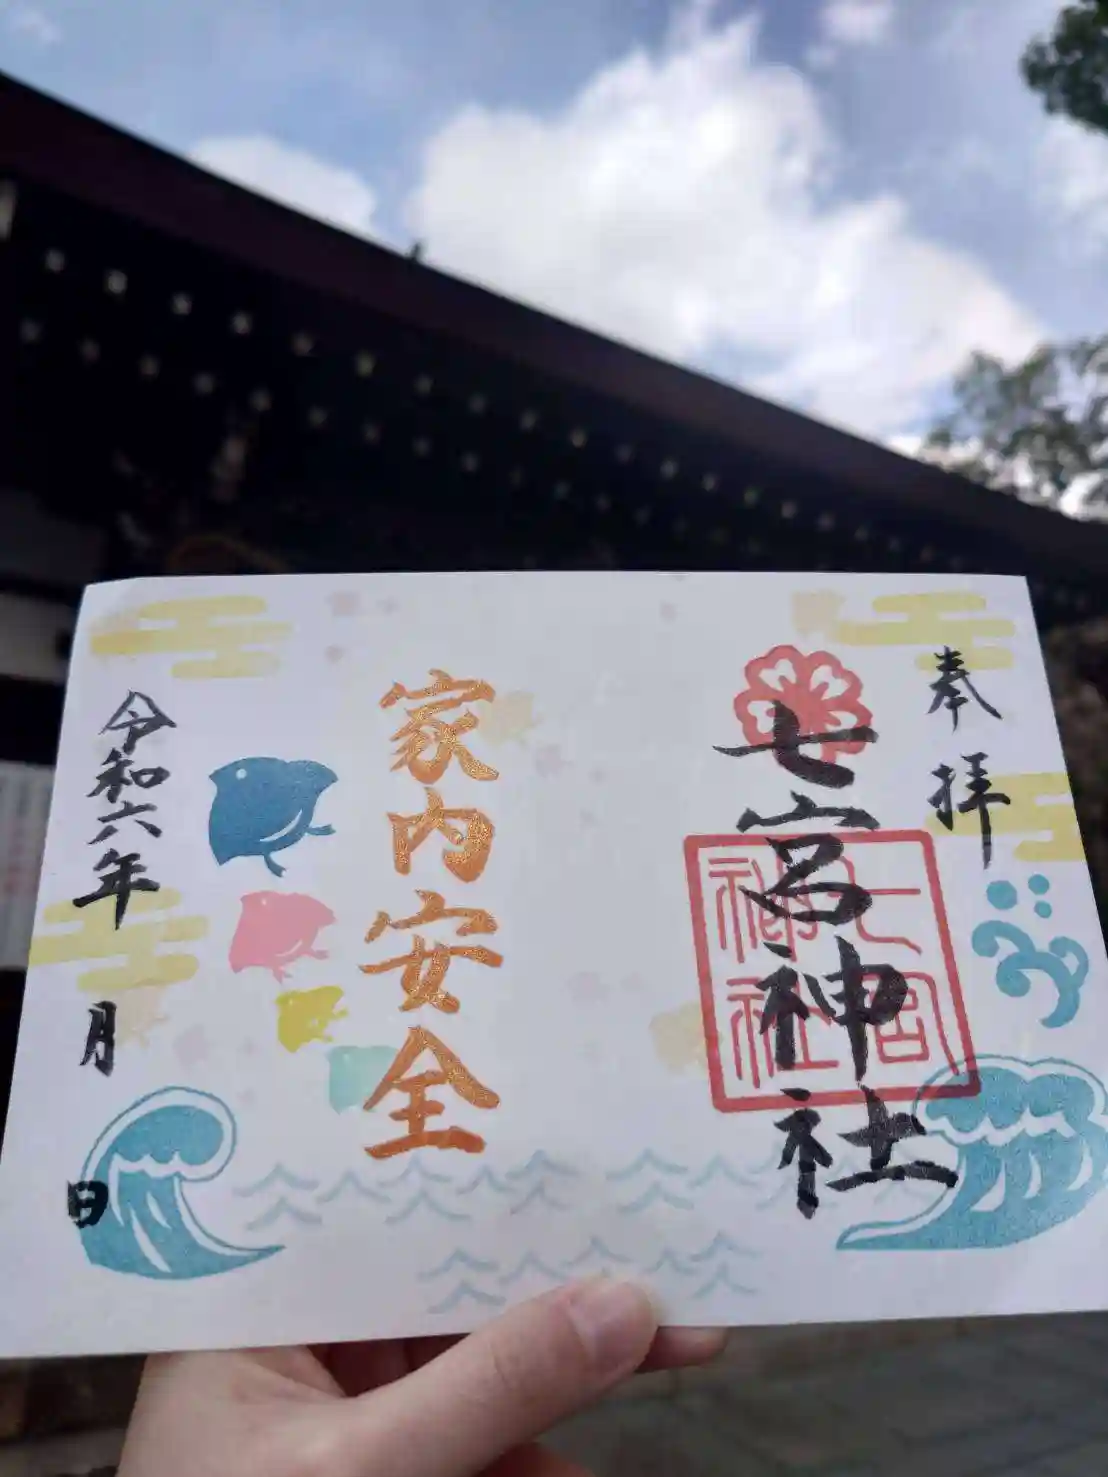 奉拝
七宮神社
七宮
神社
家内安全
令和六年
月
日